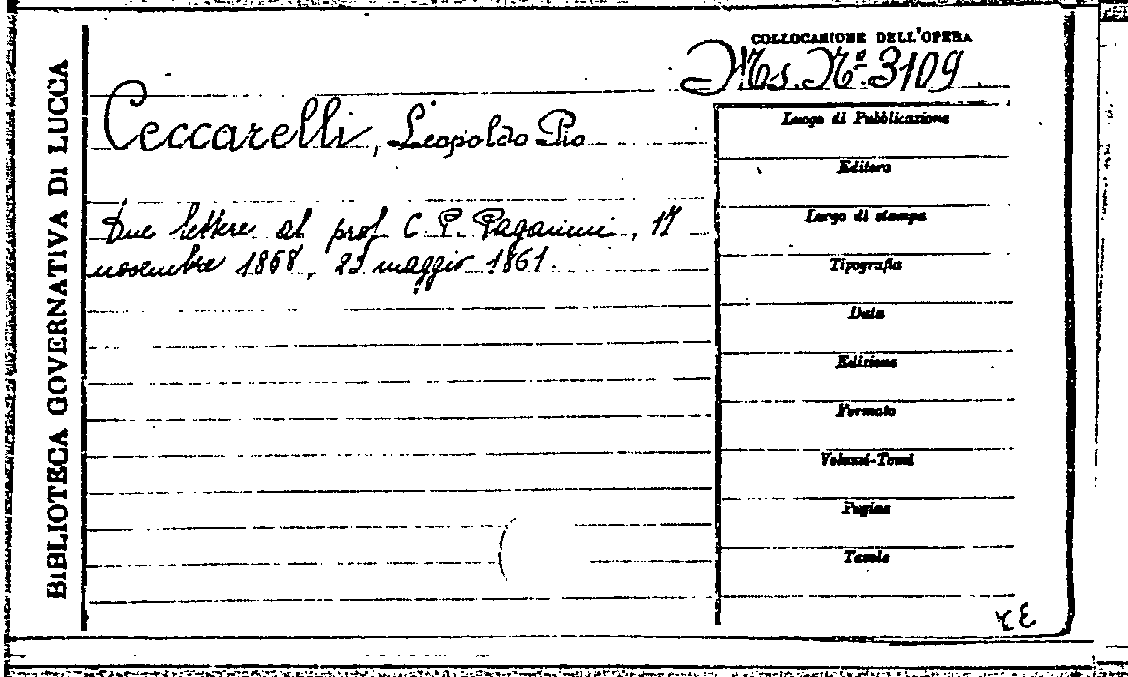 BIBLIOTECA GOVERNATIVA DI LUCCA
COLLOCAZIONE DELL'OPERA
Ms. Nº 3109
Ceccarelli, Leopoldo Pio
Due lettere al prof. C. P. Paganini, 17
novembre 1868, 23 maggio 1861.
Luogo di Pubblicazione
Editore
Luogo di stampa
Tipografia
Data
Edizione
Formato
Volumi-Tomi
Pagine
Tavole